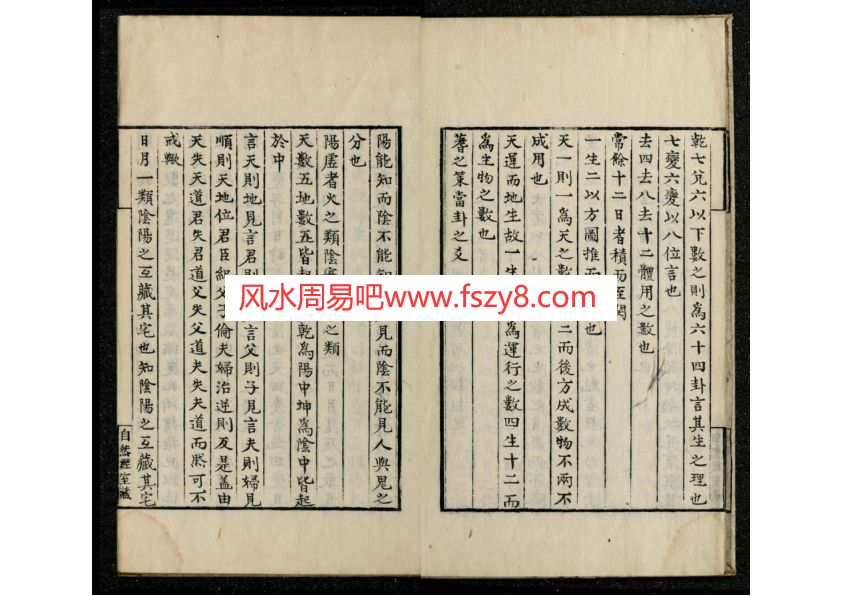 乾七兌六以下數之則爲六十四卦言其生之理也
七變六變以八位言也
去四去八去十二體用之數也
常餘十二日者積而至閏
一生二以方圖推而
也
天一則一爲天之數
二而後方成數物不兩不
成用也
天運而地生故一生
爲運行之數四生十二而
爲生物之數也
蓍之策當卦之爻
陽能知而陰不能知
見而陰不能見人與鬼之
分也
陽虛者火之類陰
之類
天數五地數五皆起
乾爲陽中坤爲陰中皆起
於中
言天則地見言君則
言父則子見言夫則婦見
順則天地位君臣紀父子倫夫婦治逆則反是蓋由
天失天道君失君道父失父道夫失夫道而然可不
戒歟
日月一類陰陽之互藏其宅也知陰陽之互藏其宅
自然經室藏
风水周易吧www.fszy8.com